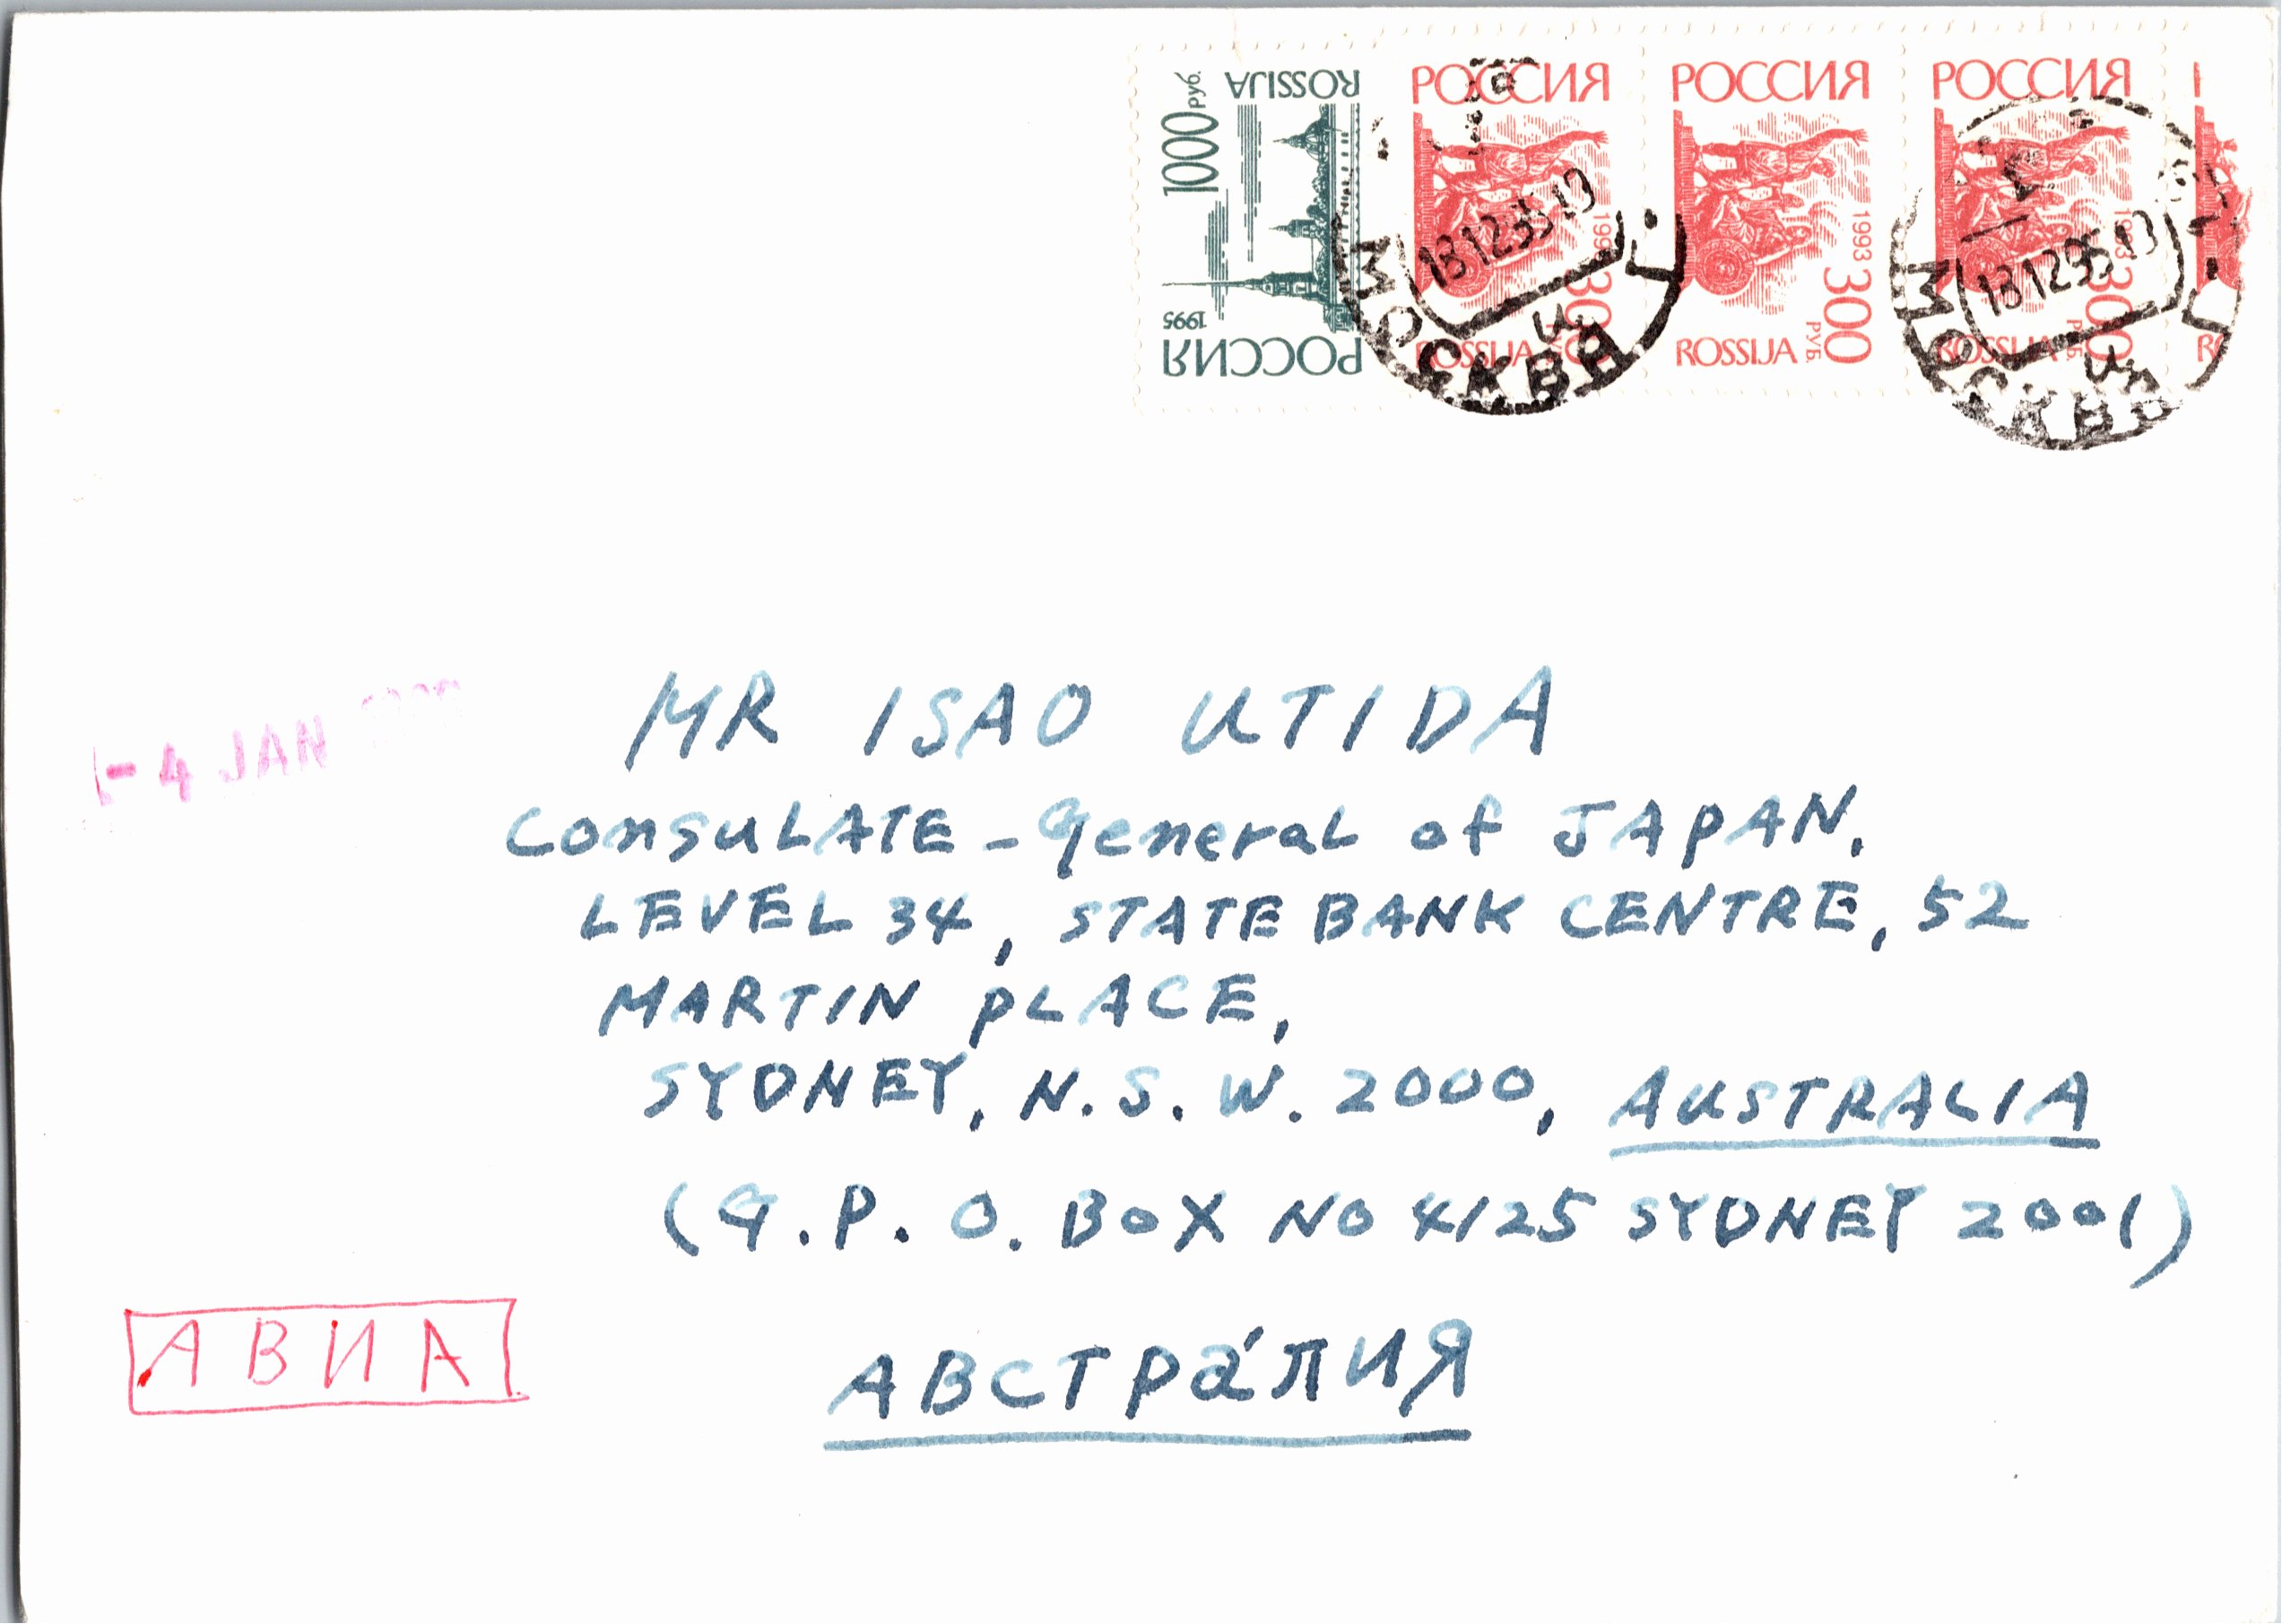 1000 руб.
ROSSIJA
1995
РОССИЯ
РОССИЯ
1993
300
РУБ.
ROSSIJA
РОССИЯ
1993
300
РУБ.
ROSSIJA
РОССИЯ
1993
300
РУБ.
ROSSIJA
МОСКВА
МОСКВА
181295
- 4 JAN
MR ISAO UTIDA
Consulate - General of JAPAN,
LEVEL 34, STATE BANK CENTRE, 52
MARTIN PLACE,
SYDNEY, N.S.W. 2000, AUSTRALIA
(G.P.O. BOX NO 4125 SYDNEY 2001)
АВИА
АВСТРа́ЛИЯ